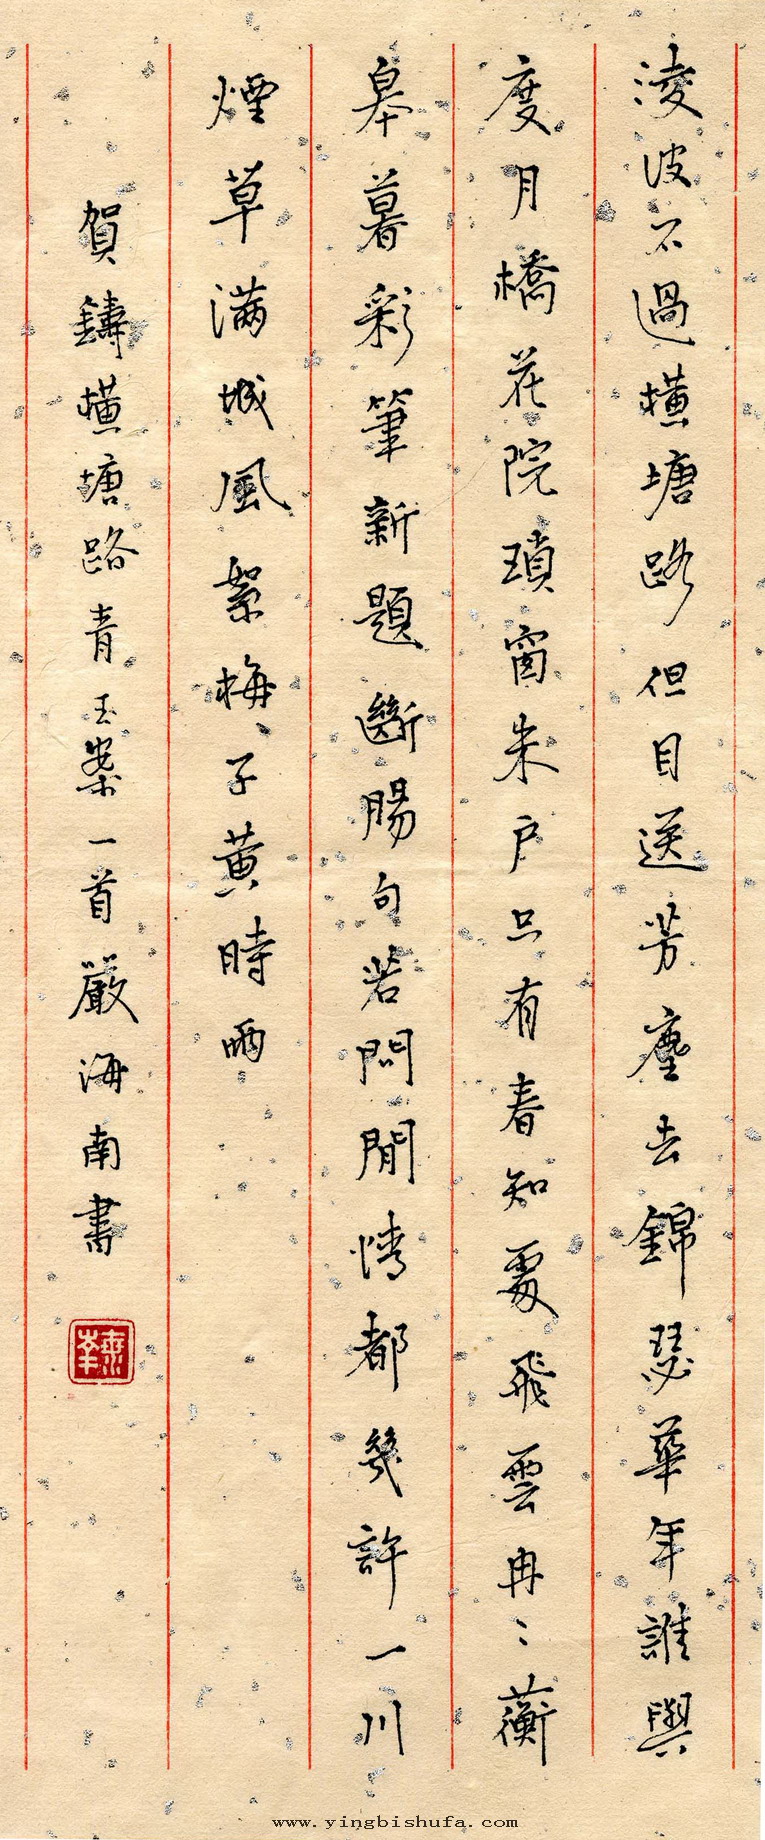 淩波不過橫塘路但目送芳塵去錦瑟華年誰與
度月橋花院瑣窗朱戶只有春知處飛雲冉〻蘅
皋暮彩筆新題斷腸句若問閒情都幾許一川
煙草滿城風絮梅子黃時雨
賀鑄橫塘路青玉案一首嚴海南書
www.yingbishufa.com